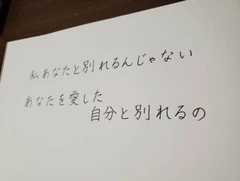 私あなたと別れるんじゃない
あなたを愛した
自分と別れるの